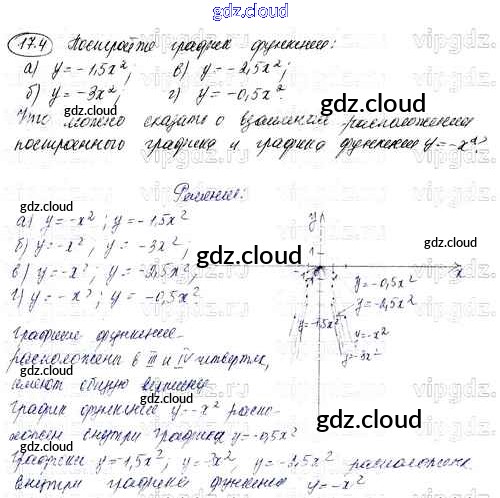 gdz.cloud
17.4 Постройте график функции:
а) y = -1,5x²; в) y = -2,5x²;
б) y = -3x²; г) y = -0,5x².
gdz.cloud
Что можно сказать о взаимном расположении
построенного графика и графика функции y = -x²?
gdz.cloud
Решение:
а) y = -x²; y = -1,5x²
б) y = -x²; y = -3x²;
в) y = -x²; y = -2,5x²;
г) y = -x²; y = -0,5x²
gdz.cloud
y
1
-1
x
y = -0,5x²
y = -2,5x²
y = -1,5x²
y = -x²
y = -3x²
Графики функций
расположены в III и IV четвертях,
имеют общую вершину
График функции y = -x² распо-
ложен внутри графика y = -0,5x²
gdz.cloud
Графики y = 1,5x²; y = -3x²; y = -2,5x² расположены
внутри графика функции y = -x²
gdz.cloud